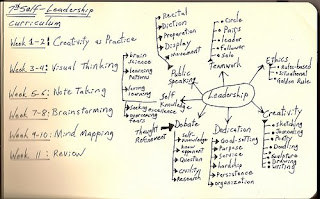 7th Self-Leadership
curriculum
Week 1-2: Creativity as Practice
Week 3-4: Visual Thinking
Week 5-6: Note Taking
Week 7-8: Brainstorming
Week 9-10: Mind Mapping
Week 11: Review
Leadership
Public
Speaking
Recital
Diction
Preparation
Display
movement
Teamwork
Circle
Pairs
leader
follower
solo
Ethics
Rules-based
Situational
Golden Rule
Creativity
Sketching
Journaling
Poetry
Doodling
Sculpture
Drawing
Writing
Dedication
Goal-setting
Purpose
Service
hardship
Persistence
organization
Debate
Self-
knowledge
know
opponent
Question
civility
Research
Thought
Refinement
Self
Knowledge
brain
science
learning
Patterns
loving
learning
Seeking excellence
overcoming
fears